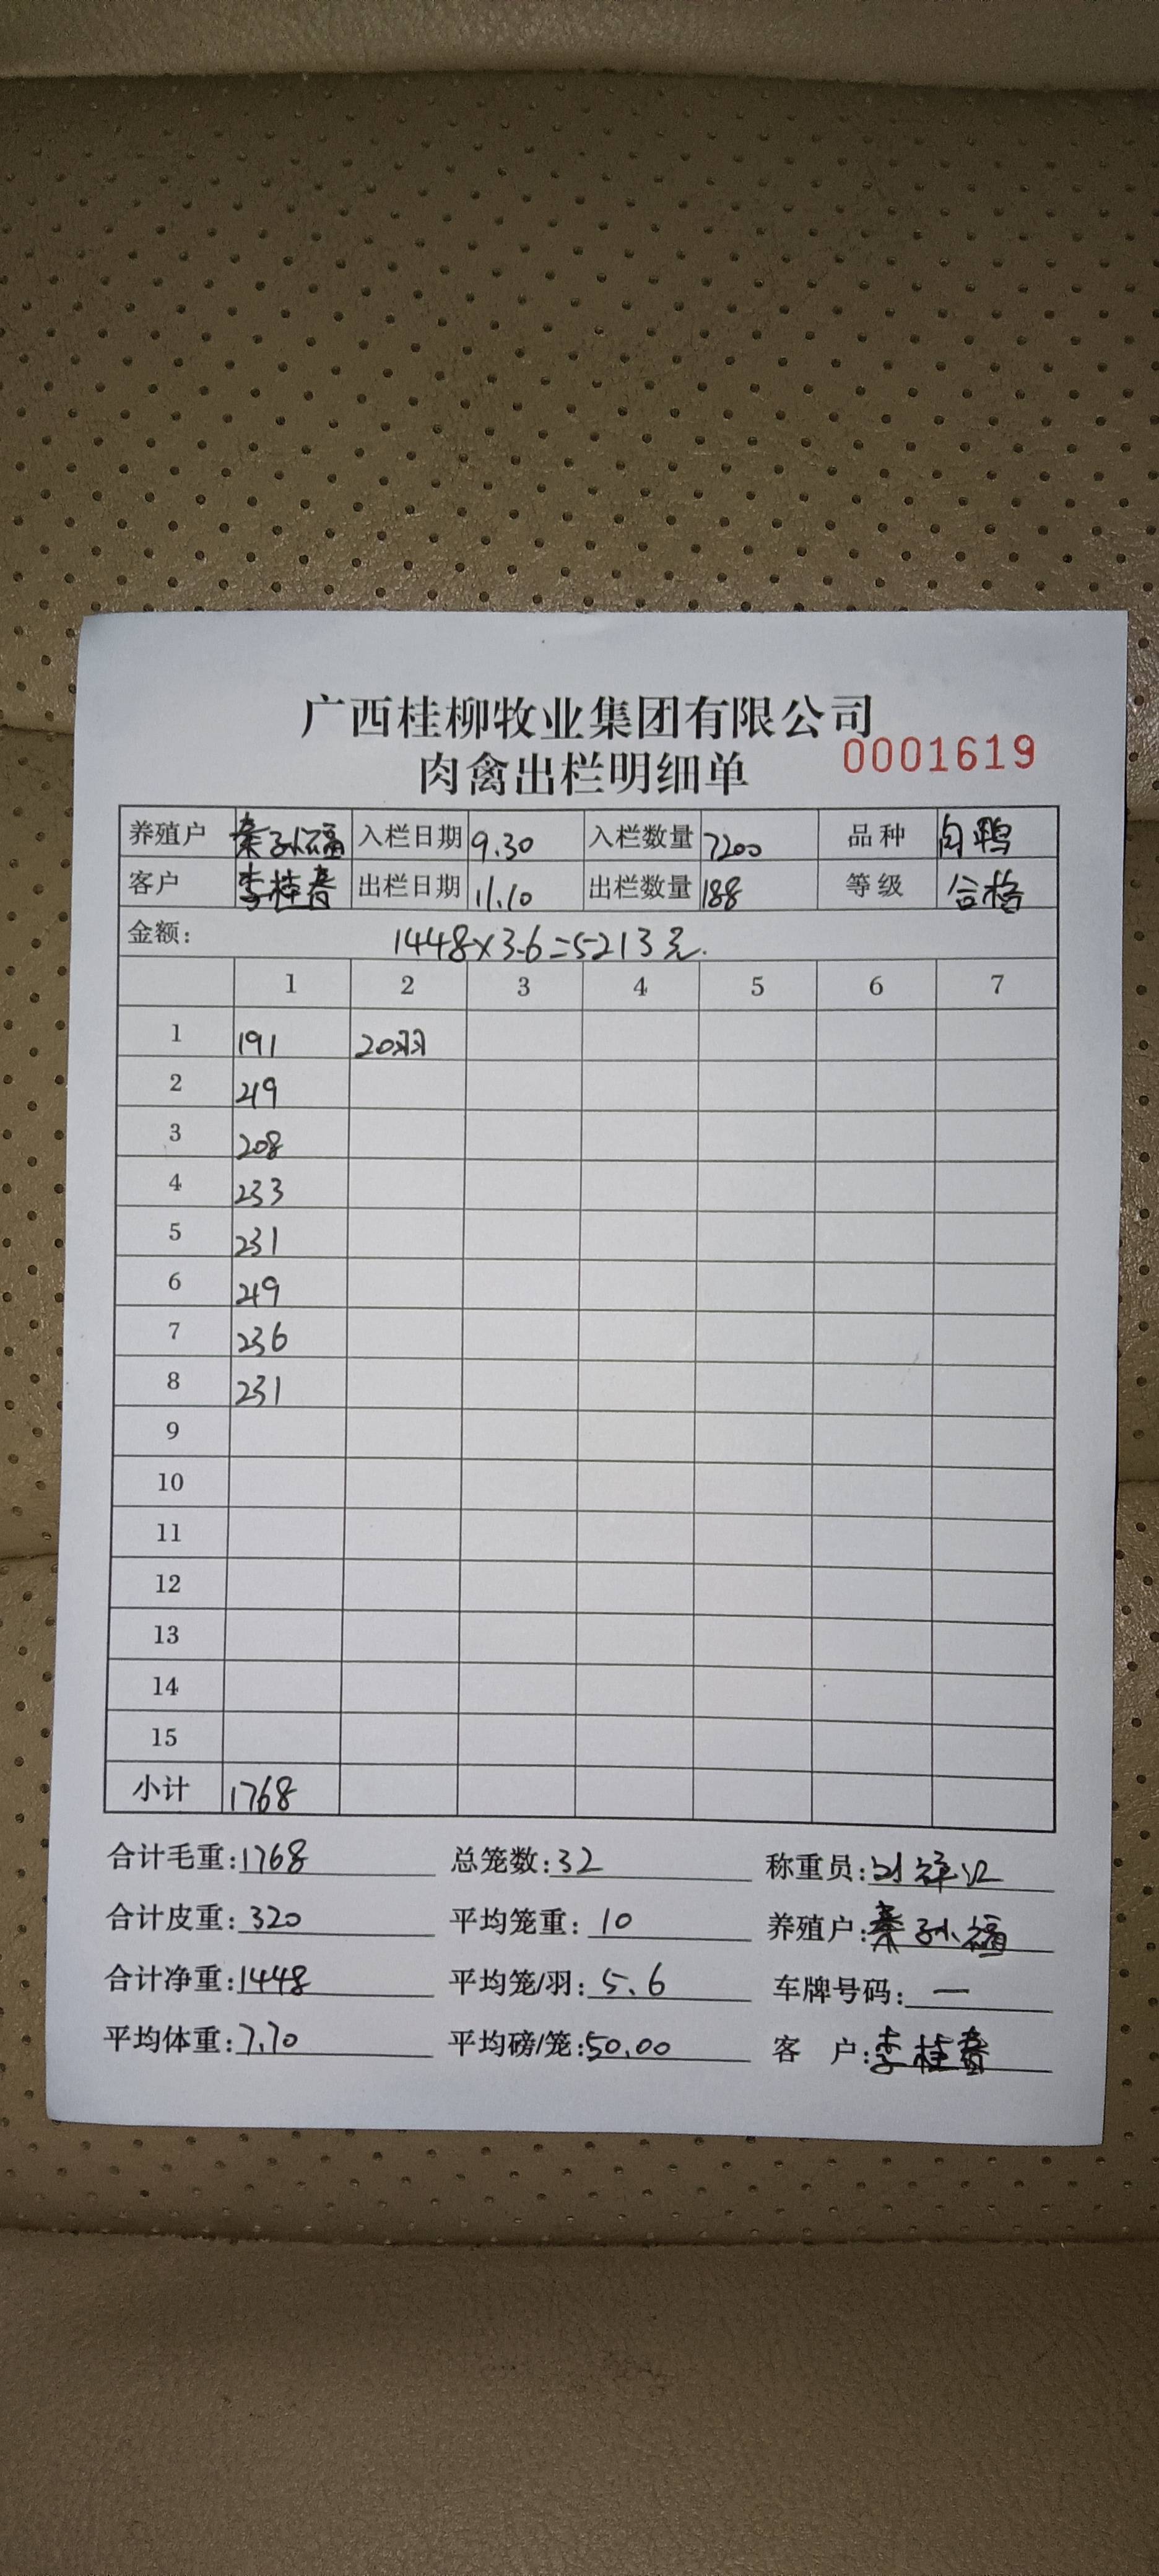 广西桂柳牧业集团有限公司
肉禽出栏明细单 0001619
养殖户 秦孙福 入栏日期 9.30 入栏数量 7200 品种 肉鸭
客户 李桂春 出栏日期 11.10 出栏数量 188 等级 合格
金额: 1448×3.6=5213元.
1 2 3 4 5 6 7
1 191 20羽
2 219
3 208
4 233
5 231
6 219
7 236
8 231
9
10
11
12
13
14
15
小计 1768
合计毛重:1768 总笼数:32 称重员:刘祥
合计皮重:320 平均笼重:10 养殖户:秦孙福
合计净重:1448 平均笼/羽:5.6 车牌号码:—
平均体重:7.70 平均磅/笼:50.00 客 户:李桂春